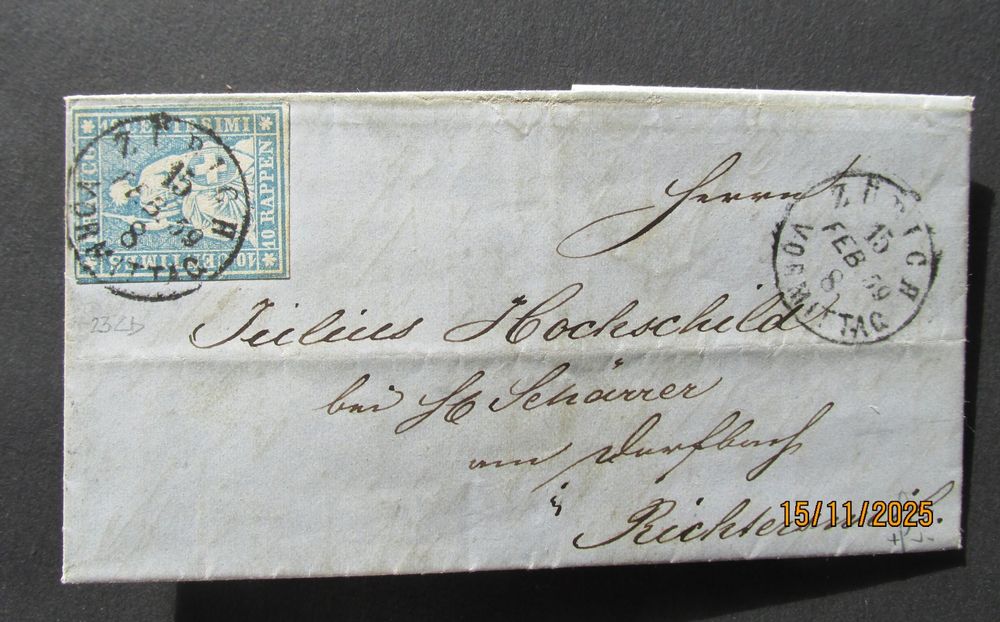 10 CENTESIMI
10 RAPPEN
10 CENTIMES
ZÜRICH
15
FEB 59
8
VORMITTAG
ZÜRICH
15
FEB 59
8
VORMITTAG
Herrn
23
Julius Hochschild
bei H Schärrer
am Dorfbach
in
Richterswil.
15/11/2025